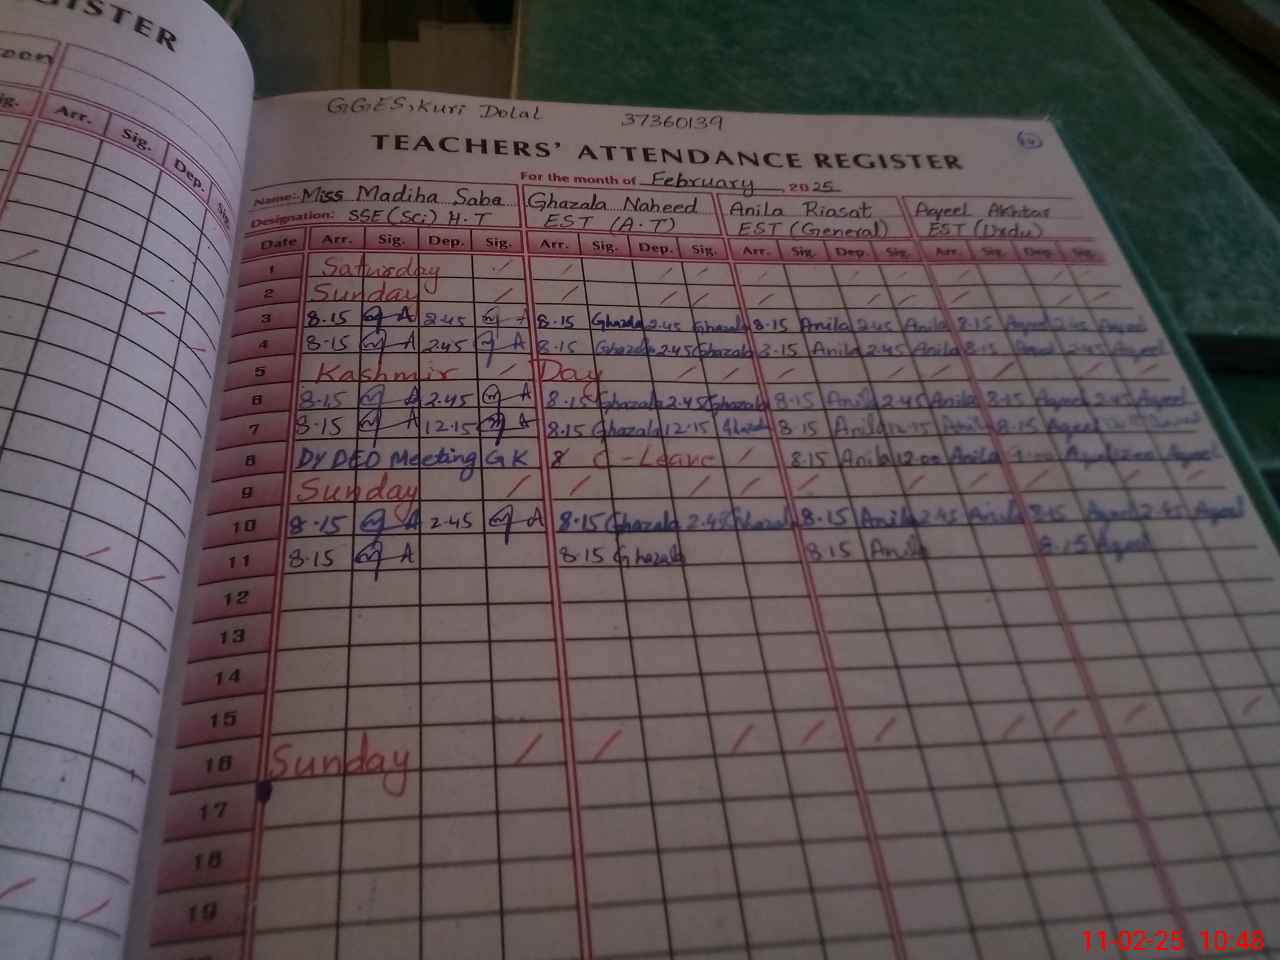 GISTER
Arr. Sig. Dep. Sig.
GGES, Kuri Dolal 37360139
TEACHERS' ATTENDANCE REGISTER
For the month of February, 2025
Name: Miss Madiha Saba Ghazala Naheed Anila Riasat Aqeel Akhtar
Designation: SSE (Sci) H.T EST (A.T) EST (General) EST (Urdu)
Date Arr. Sig. Dep. Sig. Arr. Sig. Dep. Sig. Arr. Sig. Dep. Sig. Arr. Sig. Dep. Sig.
1 Saturday
2 Sunday
3 8.15 2.45 8.15 Ghazala 2.45 Ghazala 8.15 Anila 2.45 Anila 8.15 Aqeel 2.45 Aqeel
4 8.15 2.45 8.15 Ghazala 2.45 Ghazala 8.15 Anila 2.45 Anila 8.15 Aqeel 2.45 Aqeel
5 Kashmir Day
6 8.15 2.45 8.15 Ghazala 2.45 Ghazala 8.15 Anila 2.45 Anila 8.15 Aqeel 2.45 Aqeel
7 8.15 12.15 8.15 Ghazala 12.15 Ghazala 8.15 Anila 12.15 Anila 8.15 Aqeel
8 DY DEO Meeting GK C-Leave 8.15 Anila 12.00 Anila Aqeel 12.00 Aqeel
9 Sunday
10 8.15 2.45 8.15 Ghazala 2.45 Ghazala 8.15 Anila 2.45 Anila 8.15 Aqeel 2.45 Aqeel
11 8.15 8.15 Ghazala 8.15 Anila 8.15 Aqeel
12
13
14
15
16 Sunday
17
18
19
11-02-25 10:48